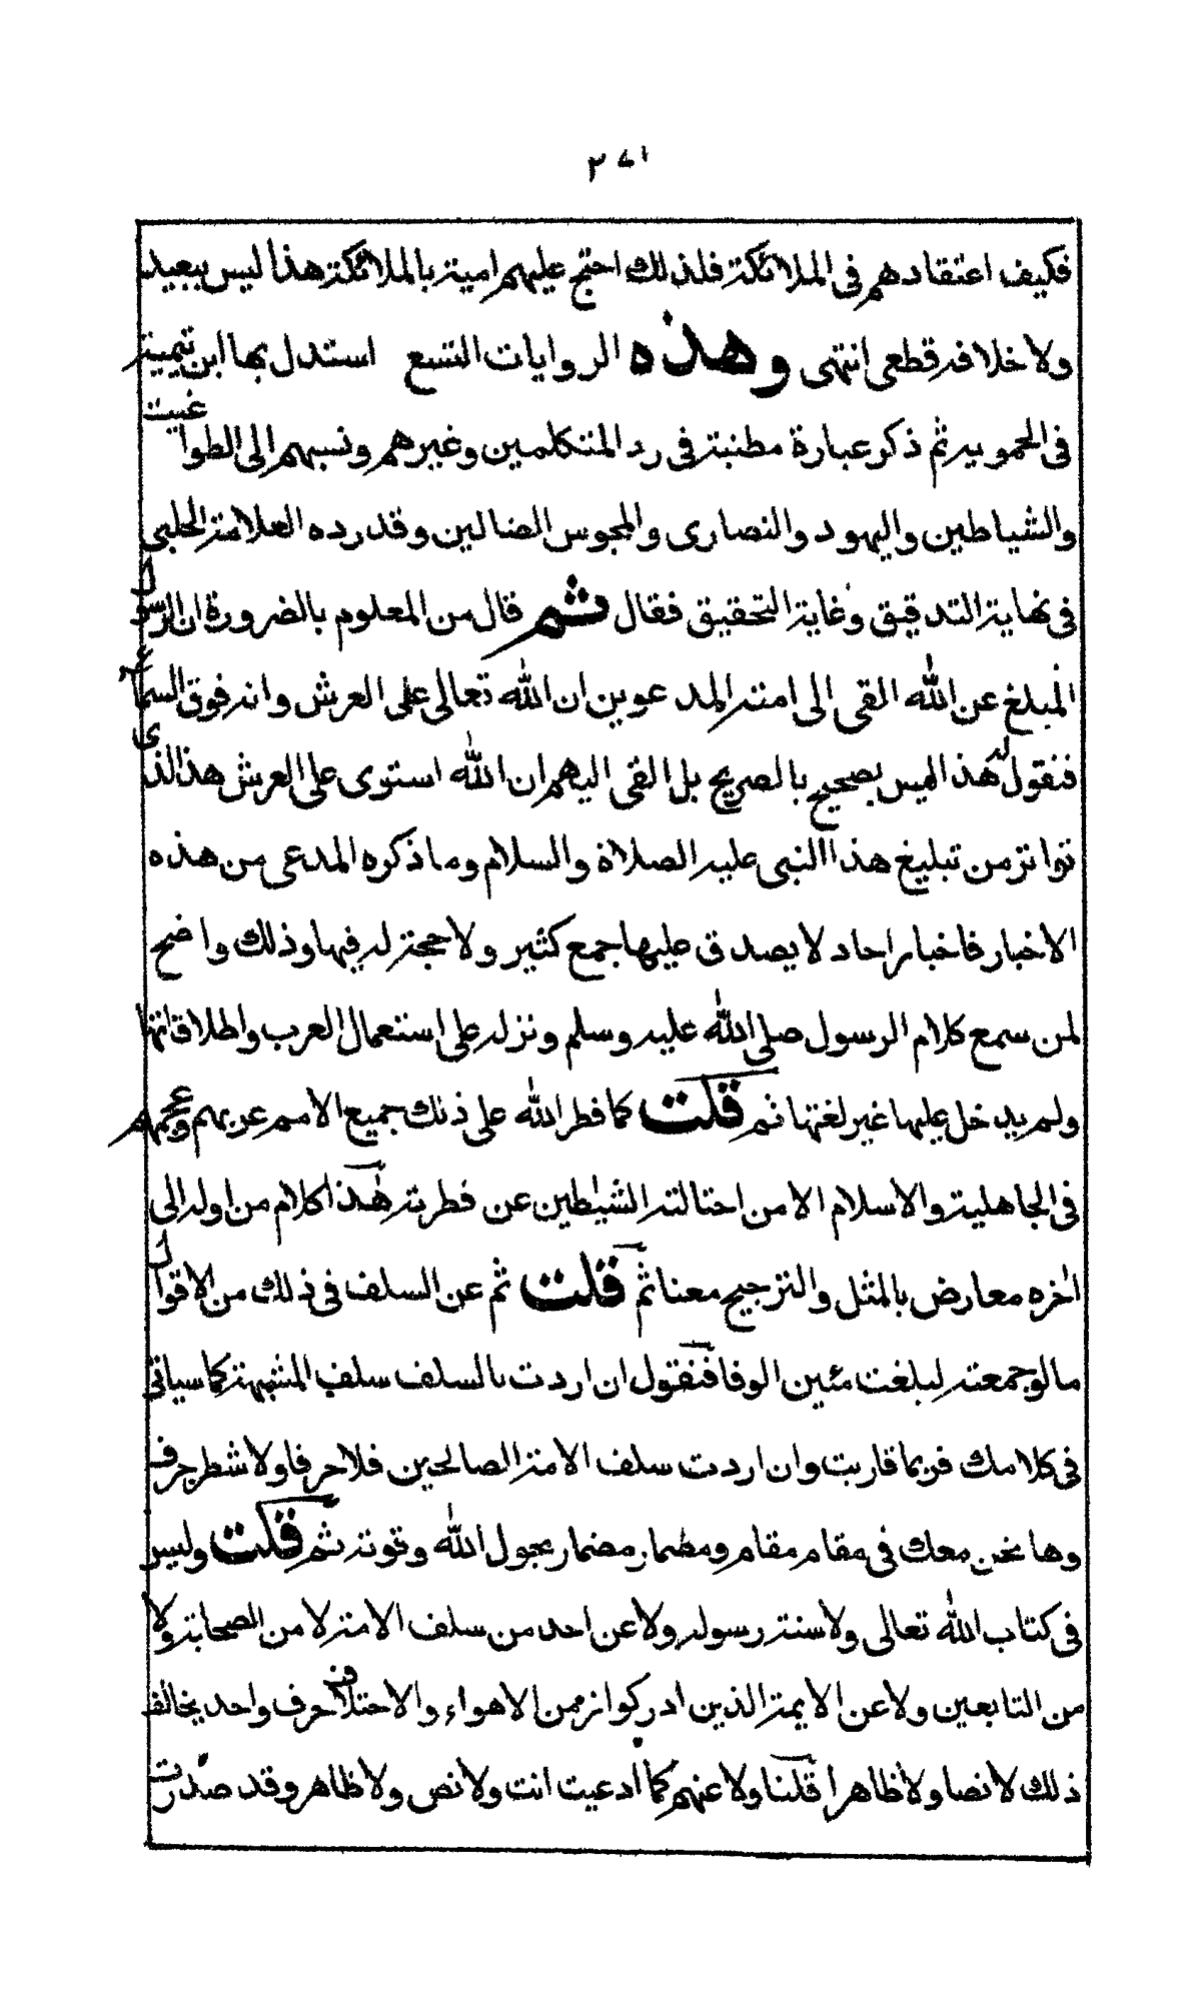 ٢٧١
فكيف اعتقادهم فى الملائكة فلذلك احتج عليهم امية بالملائكة هذا ليس ببعيد
ولا خلافه قطعى انتهى وهذه الروايات التسع استدل بها ابن تيمية
فى الحموية ثم ذكر عبارة مطنبة فى رد المتكلمين وغيرهم ونسبهم الى الطواغيت
والشياطين واليهود والنصارى والمجوس الضالين وقد رده العلامة الحلبى
فى نهاية التدقيق وغاية التحقيق فقال ثم قال من المعلوم بالضرورة ان الرسول
المبلغ عن الله القى الى امته المدعوين ان الله تعالى على العرش وانه فوق السماء
فنقول له هذا ليس بصحيح بالصريح بل القى اليهم ان الله استوى على العرش هذا الذى
تواتر من تبليغ هذا النبى عليه الصلاة والسلام وما ذكره المدعى من هذه
الاخبار فاخبار احاد لا يصدق عليها جمع كثير ولا حجة له فيها وذلك واضح
لمن سمع كلام الرسول صلى الله عليه وسلم ونزله على استعمال العرب واطلاقاتها
ولم يدخل عليها غير لغتها ثم قلت كما فطر الله على ذلك جميع الامم عربهم وعجمهم
فى الجاهلية والاسلام الا من احتالته الشيٰطين عن فطرته هٰذا كلام من اوله الى
اٰخره معارض بالمثل والترجيح معنا ثم قلت ثم عن السلف فى ذلك من الاقوال
ما لو جمعته لبلغت مئين الوفا فنقول ان اردت بالسلف سلف المشبهة كما سياتى
فى كلامك فربما قاربت وان اردت سلف الامة الصالحين فلا حرفا ولا شطر حرف
وها نحن معك فى مقام مقام ومضمار مضمار بحول الله وقوته ثم قلت وليس
فى كتاب الله تعالى ولا سنة رسوله ولا عن احد من سلف الامة لا من الصحابة ولا
من التابعين ولا عن الايمة الذين ادركوا زمن الاهواء والاختلاف حرف واحد يخالف
ذلك لا نصا ولا ظاهرا قلنا ولا عنهم كما ادعيت انت ولا نص ولا ظاهر وقد صدرت